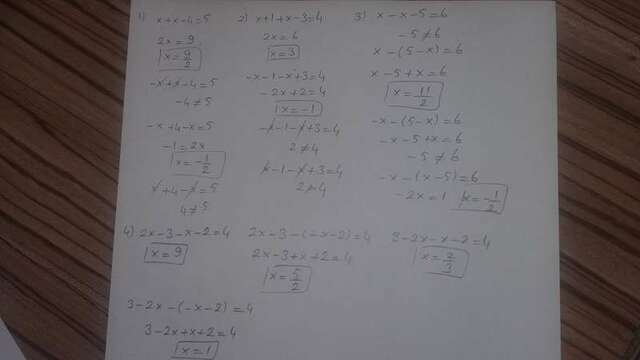 1) x+x-4=5
2x=9
x=9/2
-x+x-4=5
-4≠5
-x+4-x=5
-1=2x
x=-1/2
x+4-x=5
4≠5
2) x+1+x-3=4
2x=6
x=3
-x-1-x+3=4
-2x+2=4
x=-1
-x-1-x+3=4
2≠4
x-1-x+3=4
2≠4
3) x-x-5=6
-5≠6
x-(5-x)=6
x-5+x=6
x=11/2
-x-(5-x)=6
-x-5+x=6
-5≠6
-x-(x-5)=6
-2x=1
x=-1/2
4) 2x-3-x-2=4
x=9
2x-3-(-x-2)=4
2x-3+x+2=4
x=5/2
3-2x-x-2=4
x=2/3
3-2x-(-x-2)=4
3-2x+x+2=4
x=1